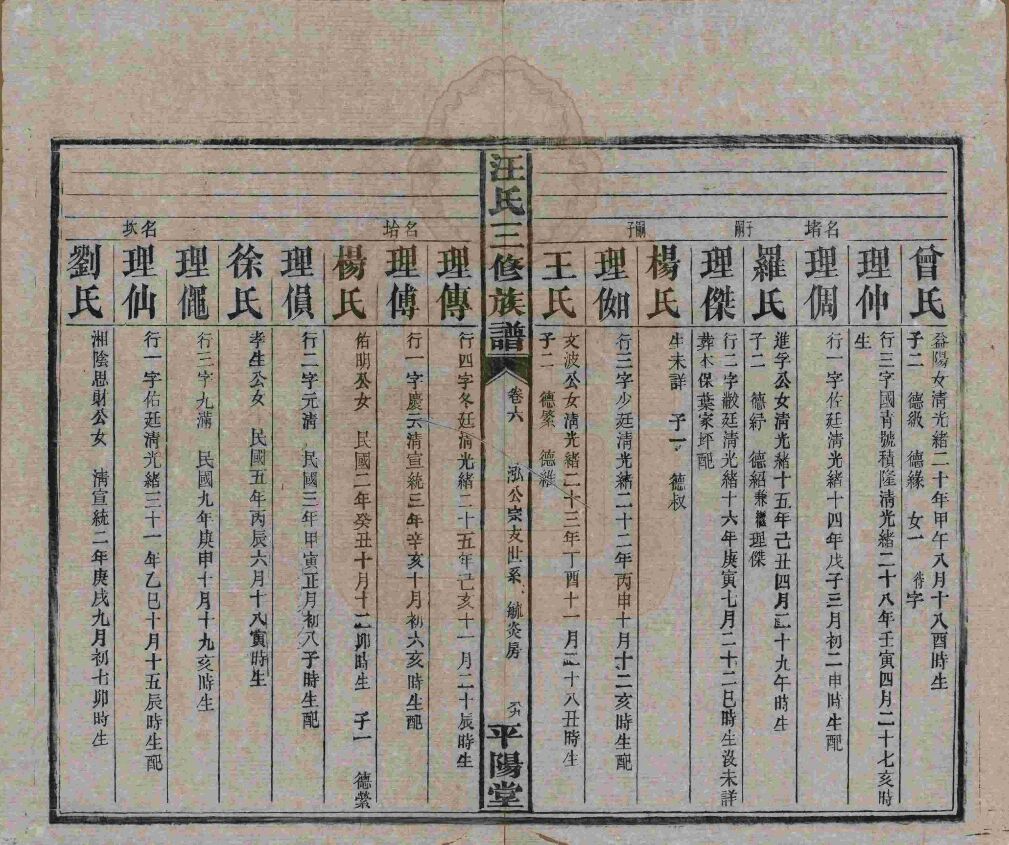 曾氏
益陽女清光緒二十年甲午八月十八酉時生
子二 德級 德緣 女一 待字
理仲
行三字國青號積隆清光緒二十八年壬寅四月二十七亥時
生
名堵
理倜
行一字佐廷清光緒十四年戊子三月初二申時生配
羅氏
進孚公女清光緒十五年己丑四月二十九午時生
子二 德紓 德紹兼繼理傑
子嗣
理傑
行二字獻廷清光緒十六年庚寅七月二十二巳時生沒未詳
葬木保葉家坪配
楊氏
生未詳 子一 德权
嗣子
理伽
行三字少廷清光緒二十二年丙申十月十二亥時生配
王氏
文波公女清光緒二十三年丁酉十一月二十八丑時生
子二 德縈 德維
汪氏三修族譜
卷六
泓公宗支世系 毓炎房
平陽堂
理傳
行四字冬廷清光緒二十五年己亥十一月二十辰時生
名坮
理傅
行一字慶云清宣統三年辛亥十月初六亥時生配
楊氏
佑明公女 民國二年癸丑十月十二卯時生 子一 德縈
理偵
行二字元清 民國三年甲寅正月初八子時生配
徐氏
孝生公女 民國五年丙辰六月十八寅時生
理僶
行三字九滿 民國九年庚申十月十九亥時生
名坎
理仙
行一字佑廷清光緒三十一年乙巳十月十五辰時生配
劉氏
湘陰思財公女 清宣統二年庚戌九月初七卯時生